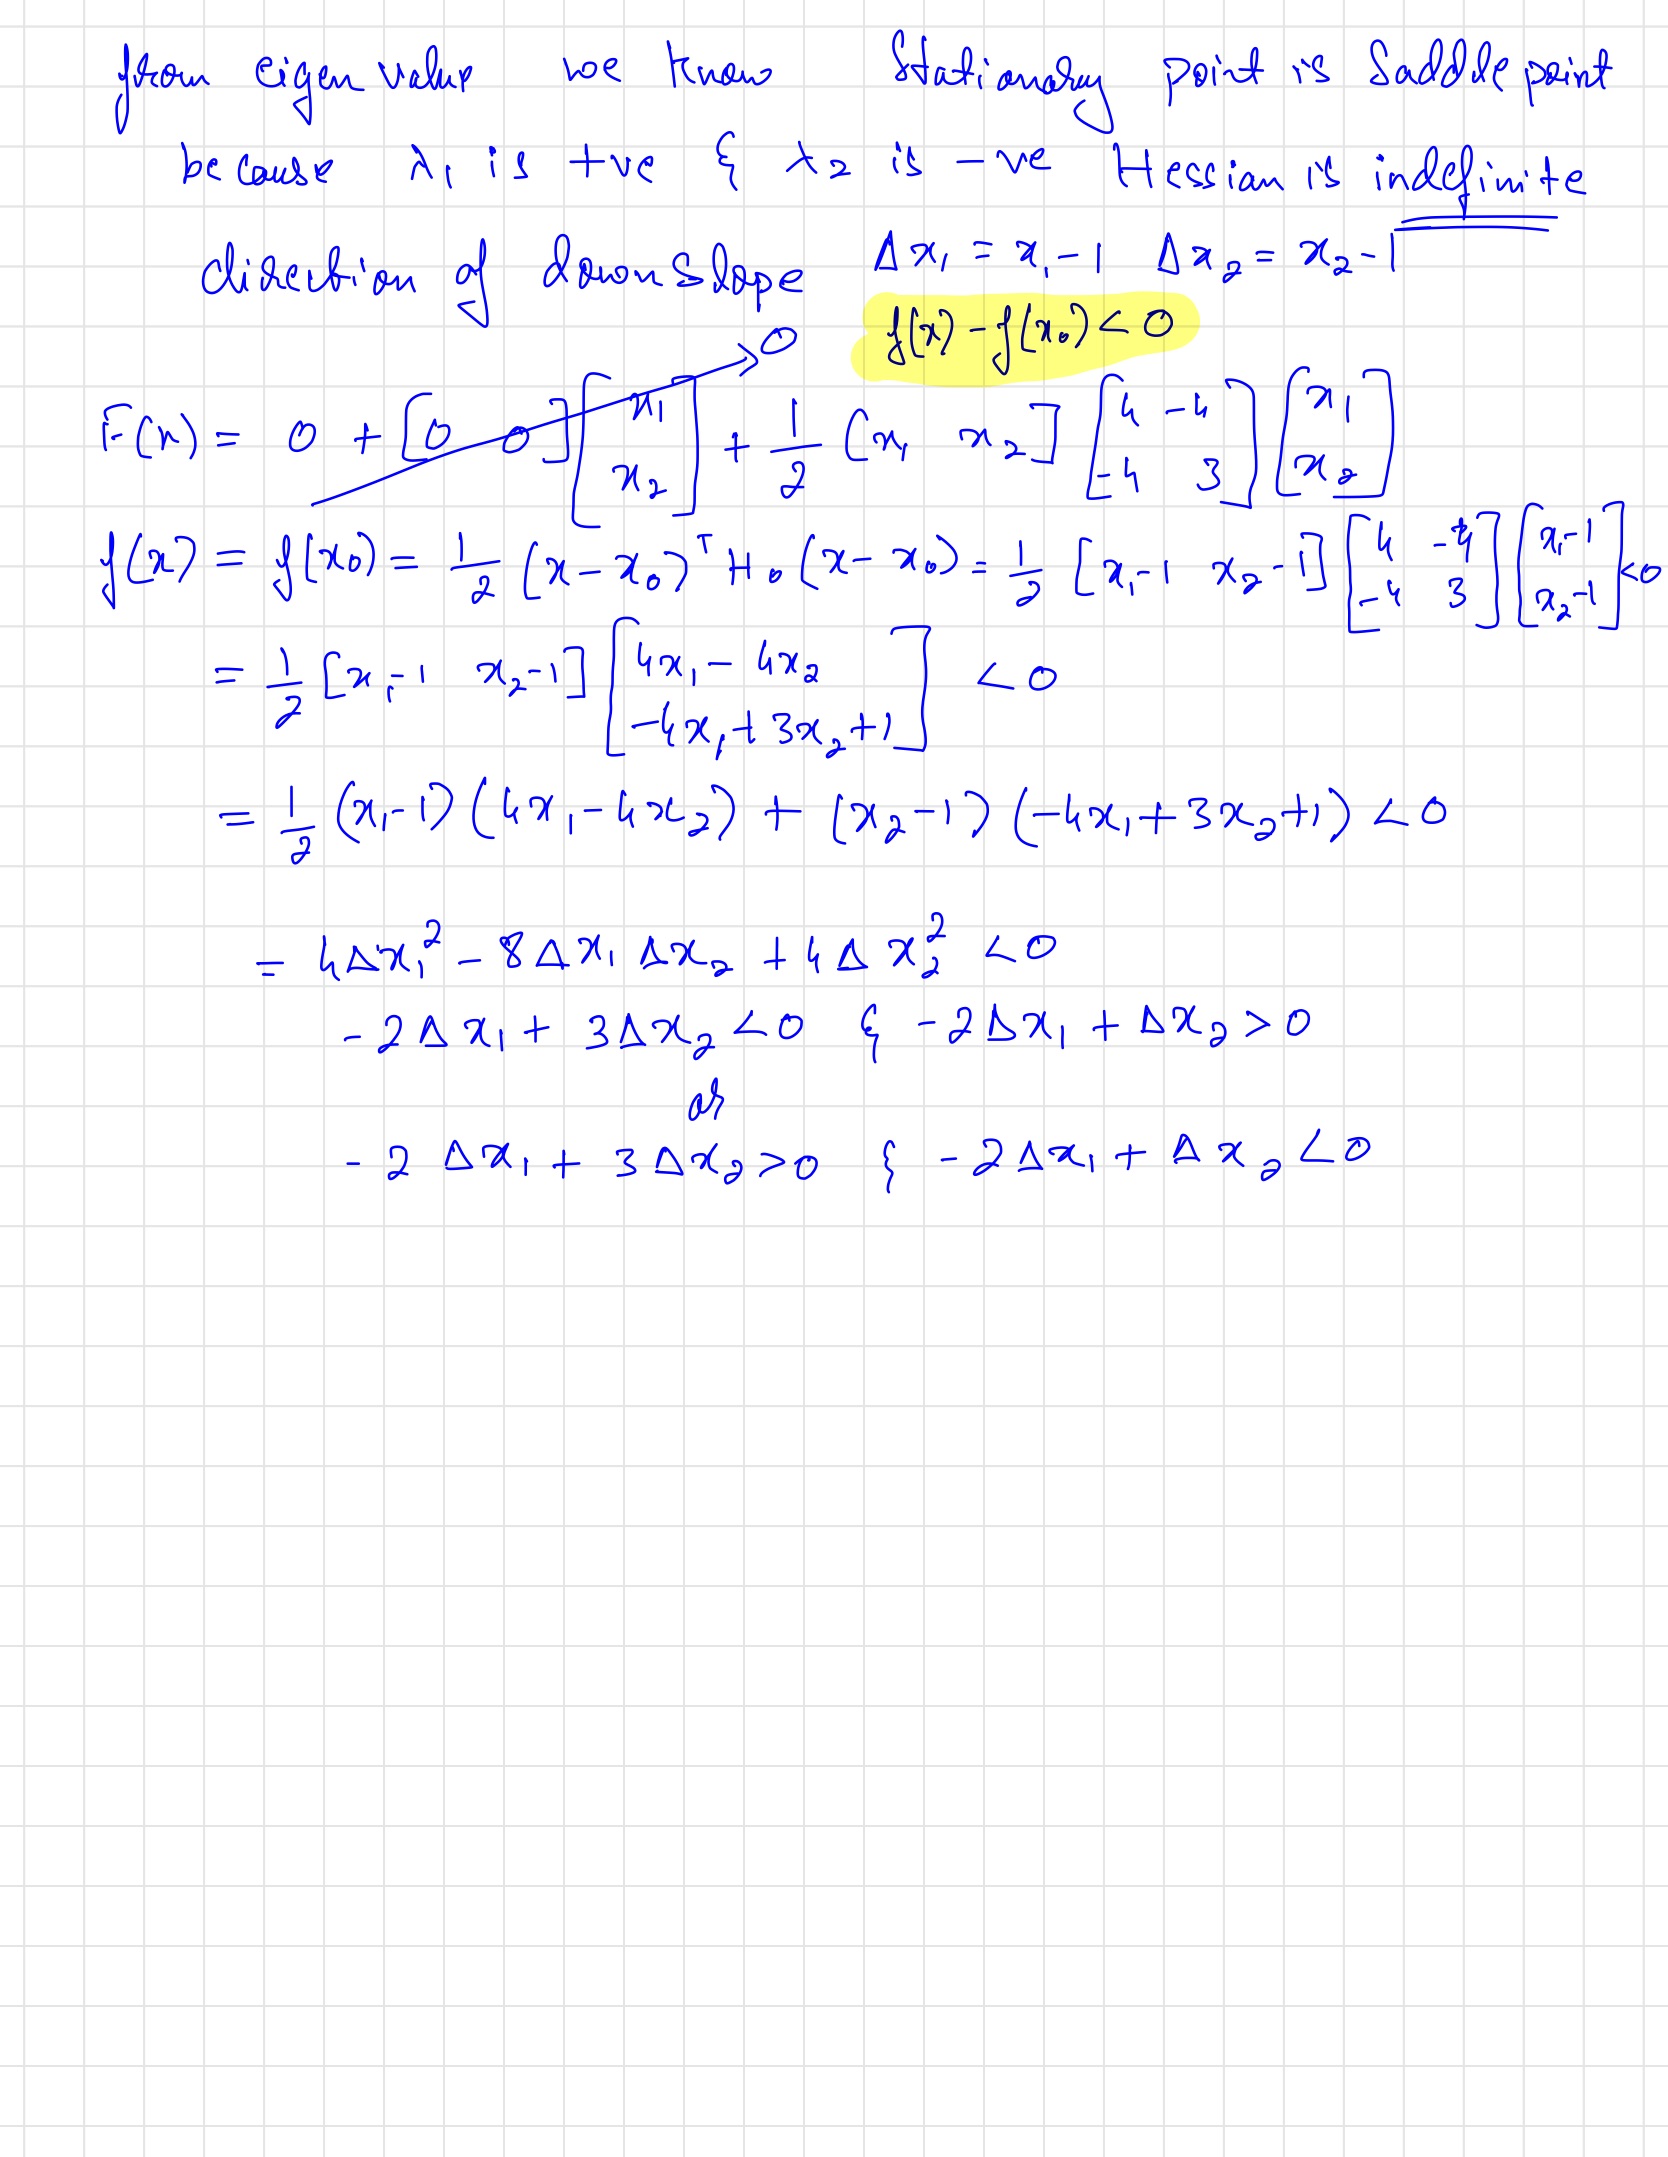 from eigen value we know Stationary point is Saddle point
because λ₁ is +ve & λ₂ is -ve Hessian is indefinite
direction of downslope Δx₁ = x₁-1 Δx₂ = x₂-1
f(x) - f(x₀) < 0
F(x) = 0 + [0 0] [x₁ x₂] → 0 + 1/2 [x₁ x₂] [4 -4 -4 3] [x₁ x₂]
f(x) = f(x₀) = 1/2 (x-x₀)ᵀ H₀ (x-x₀) = 1/2 [x₁-1 x₂-1] [4 -4 -4 3] [x₁-1 x₂-1] <0
= 1/2 [x₁-1 x₂-1] [4x₁-4x₂ -4x₁+3x₂+1] <0
= 1/2 (x₁-1)(4x₁-4x₂) + (x₂-1)(-4x₁+3x₂+1) <0
= 4Δx₁² - 8Δx₁Δx₂ + 4Δx₂² <0
-2Δx₁ + 3Δx₂ <0 & -2Δx₁ + Δx₂ > 0
or
-2Δx₁ + 3Δx₂ >0 & -2Δx₁ + Δx₂ <0